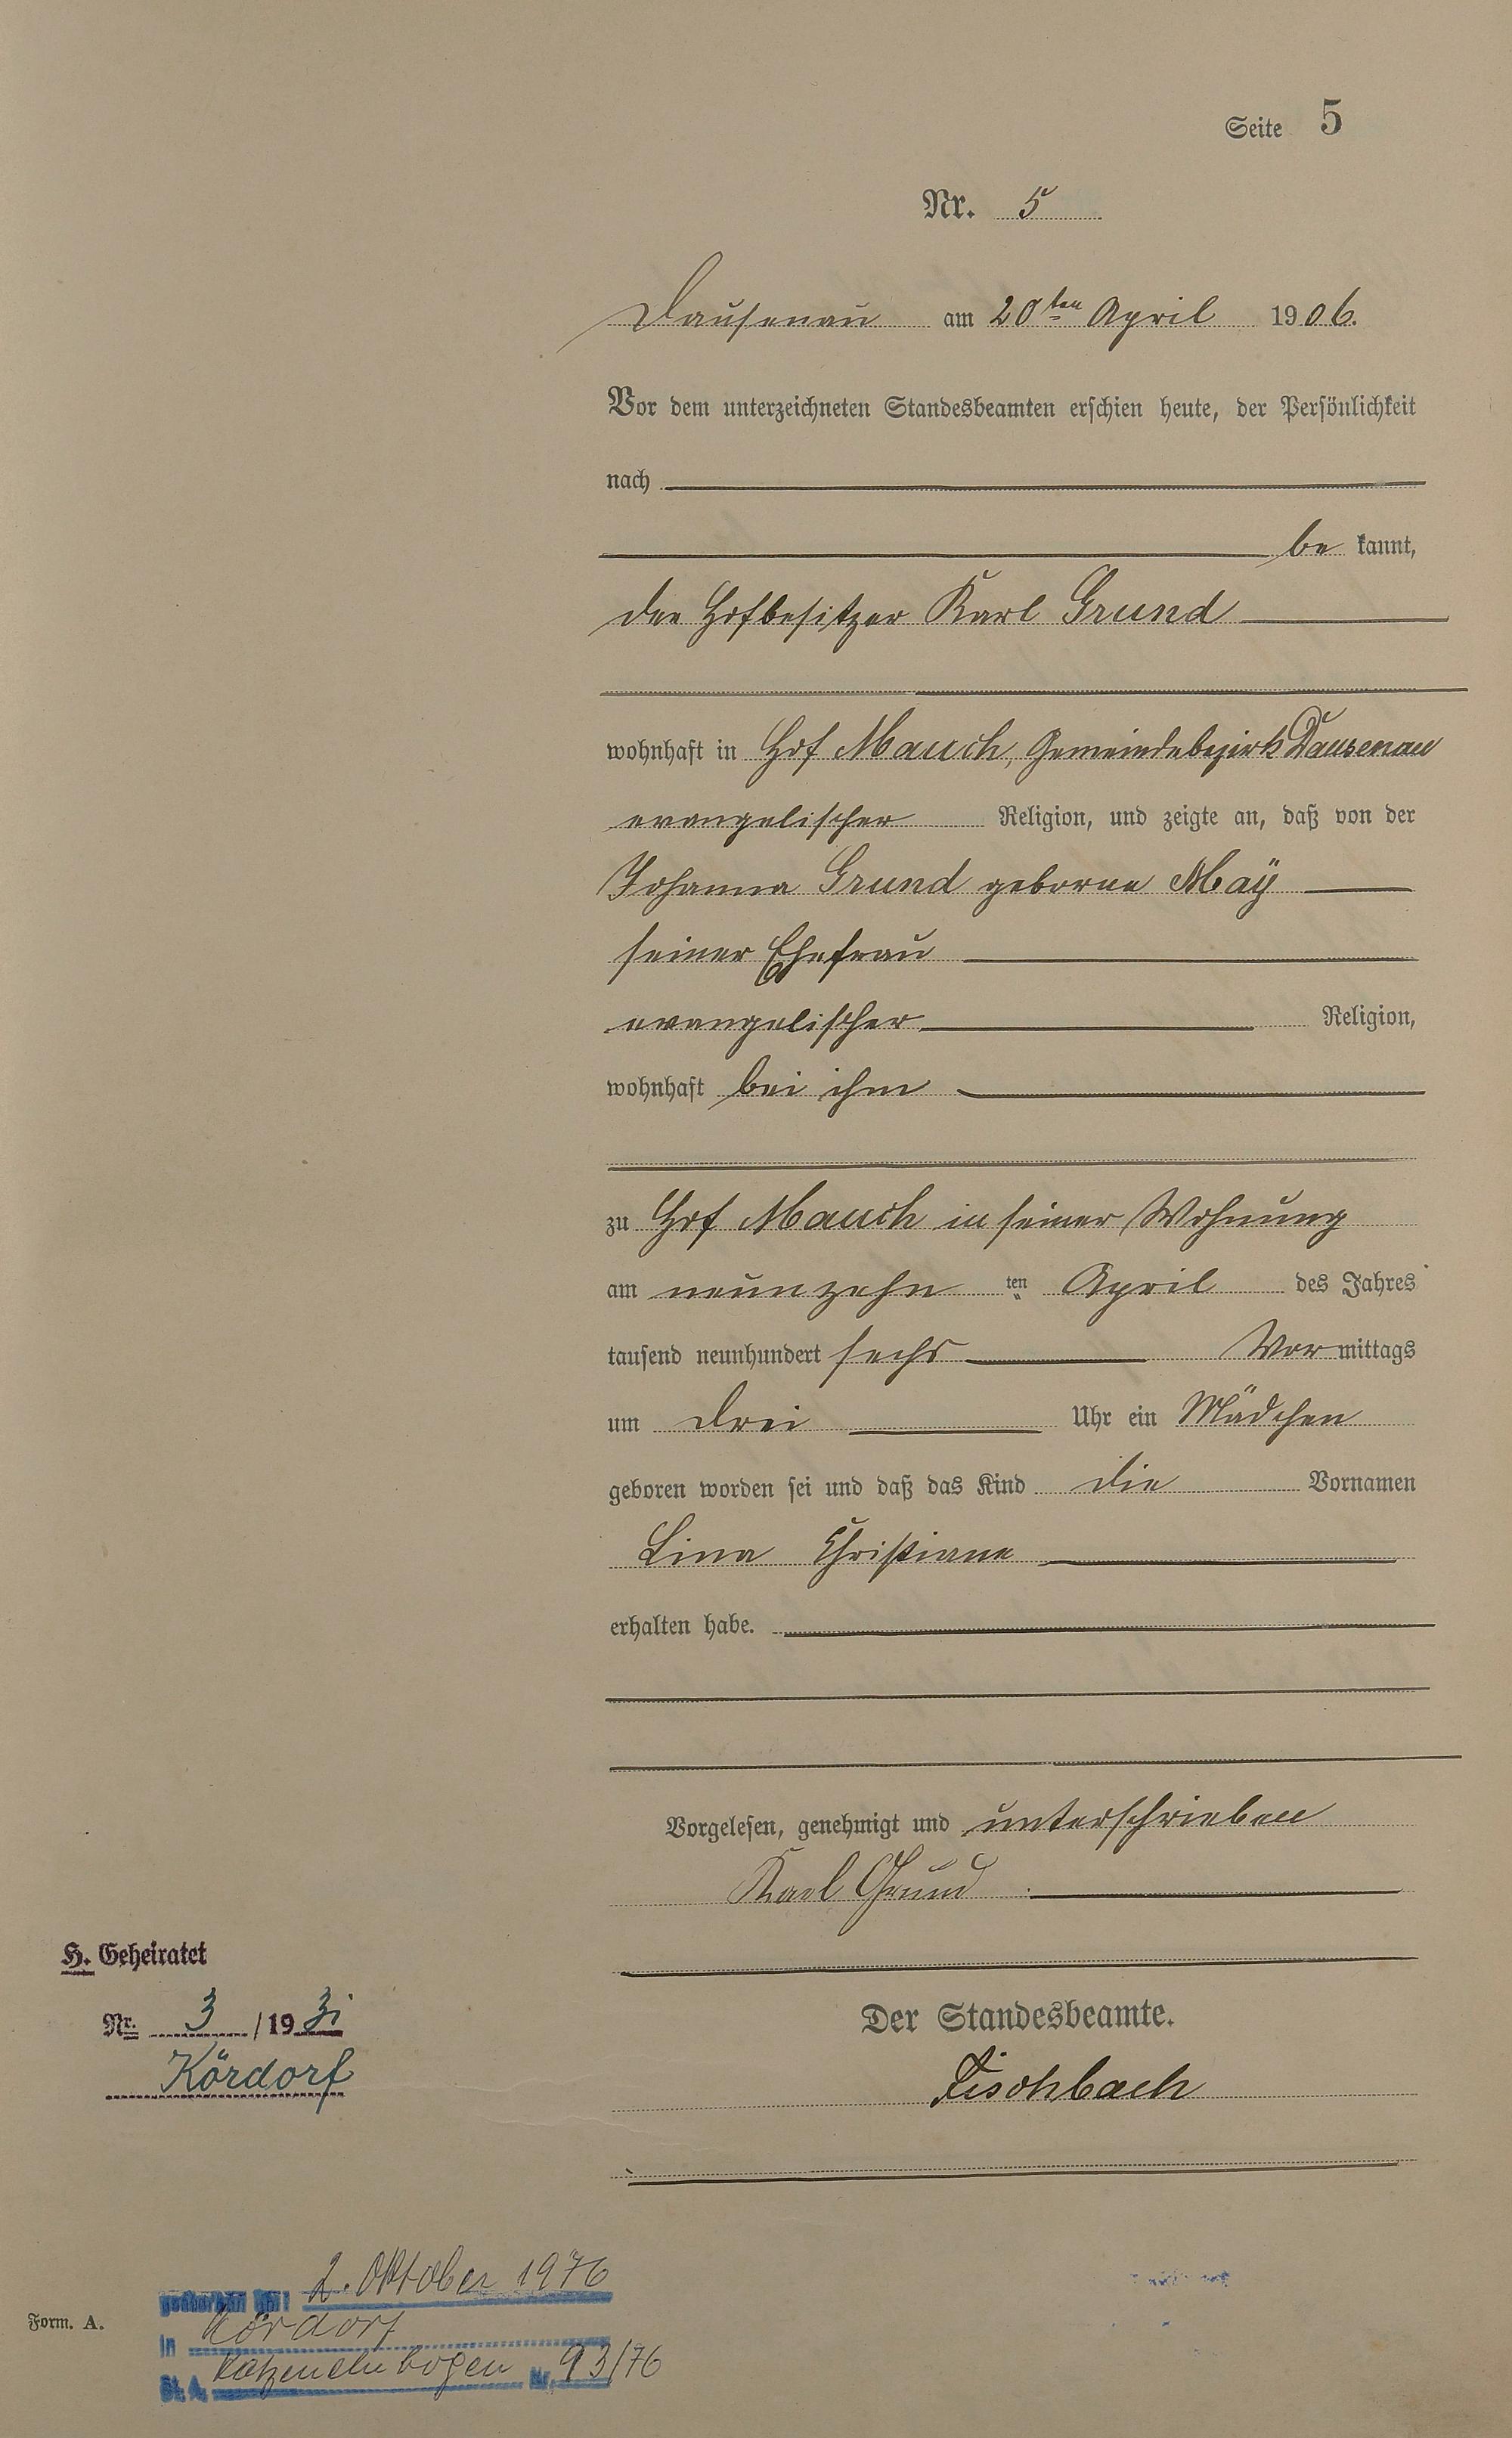 Seite 5
Nr. 5
Dausenau am 20ten April 1906.
Vor dem unterzeichneten Standesbeamten erschien heute, der Persönlichkeit
nach
be kannt,
der Hofbesitzer Karl Grund
wohnhaft in Hof Mauch, Gemeindebezirk Dausenau
evangelischer Religion, und zeigte an, daß von der
Johanna Grund geborne Maÿ
seiner Ehefrau
evangelischer Religion,
wohnhaft bei ihm
zu Hof Mauch in seiner Wohnung
am neunzehn ten April des Jahres
tausend neunhundert sechs Vormittags
um drei Uhr ein Mädchen
geboren worden sei und daß das Kind die Vornamen
Lina Christiane
erhalten habe.
Vorgelesen, genehmigt und unterschrieben
Karl Grund
H. Geheiratet
Nr. 3 / 1931
Kördorf
Der Standesbeamte.
Fischbach
gestorben am: 2. Oktober 1976
in Kördorf
St. A. Katzenelnbogen Nr. 93/76
Form. A.